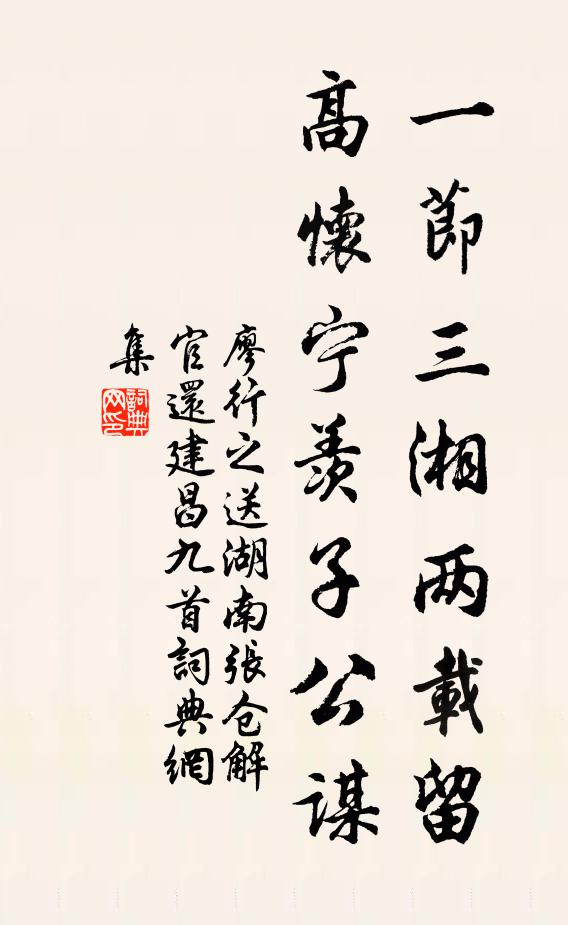 一節三湘两載留
高懷宁羨子公謀
廖行之送湖南張仓解
官還建昌九首詞典網
集
詞典
网印